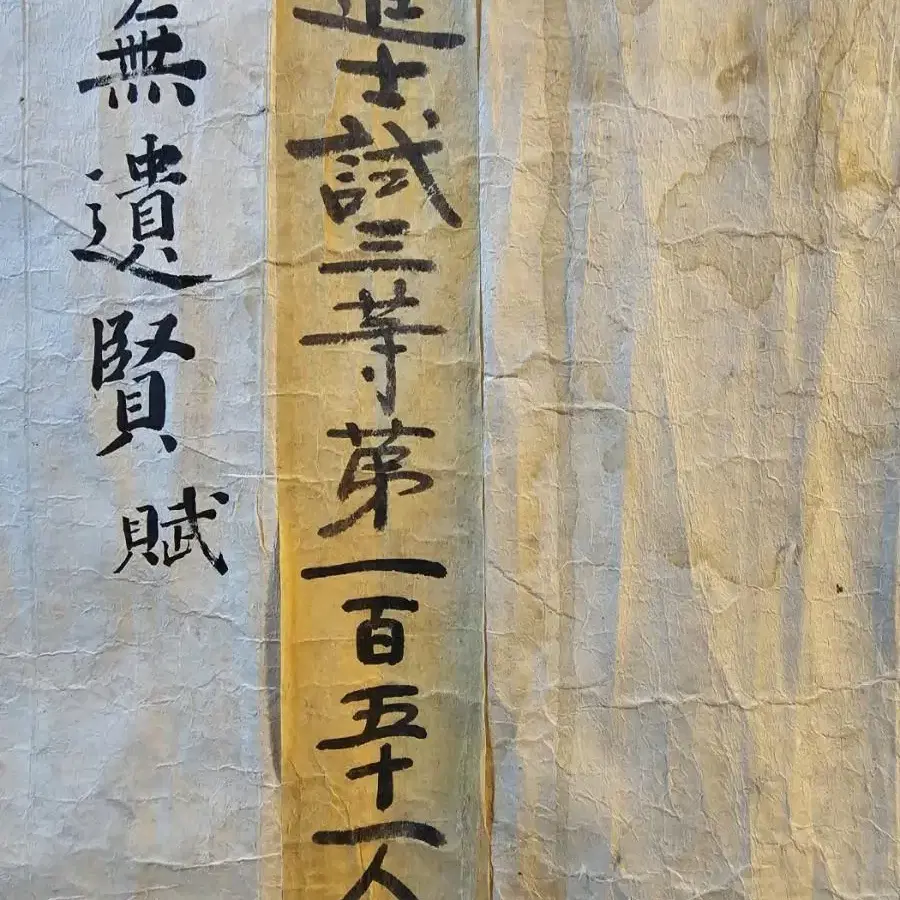 進士試三等第一百五十一人
無遺賢賦